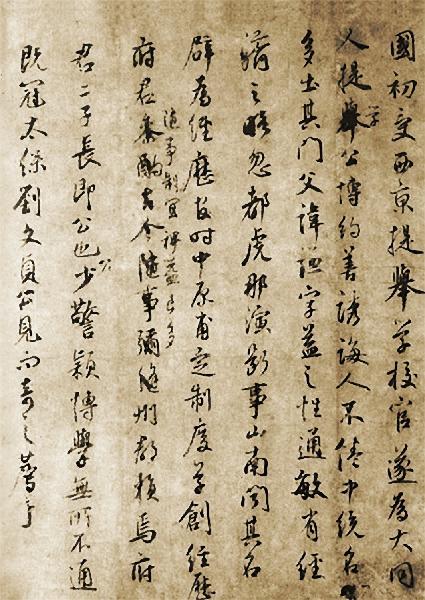 國初受西京提舉學校官遂為大同
人提舉公博約善誘誨人不倦中統名
多出其門父諱謙字益之性通敏有經
濟之略忽都虎那演事山南聞其名
辟為經歷故時中原甫定制度草創經歷
隨事制宜裨益良多
府君參酌古今隨事彌縫州郡賴焉府
君二子長即公也公少警穎博學無所不通
既冠太保劉文貞公見而奇之薦于